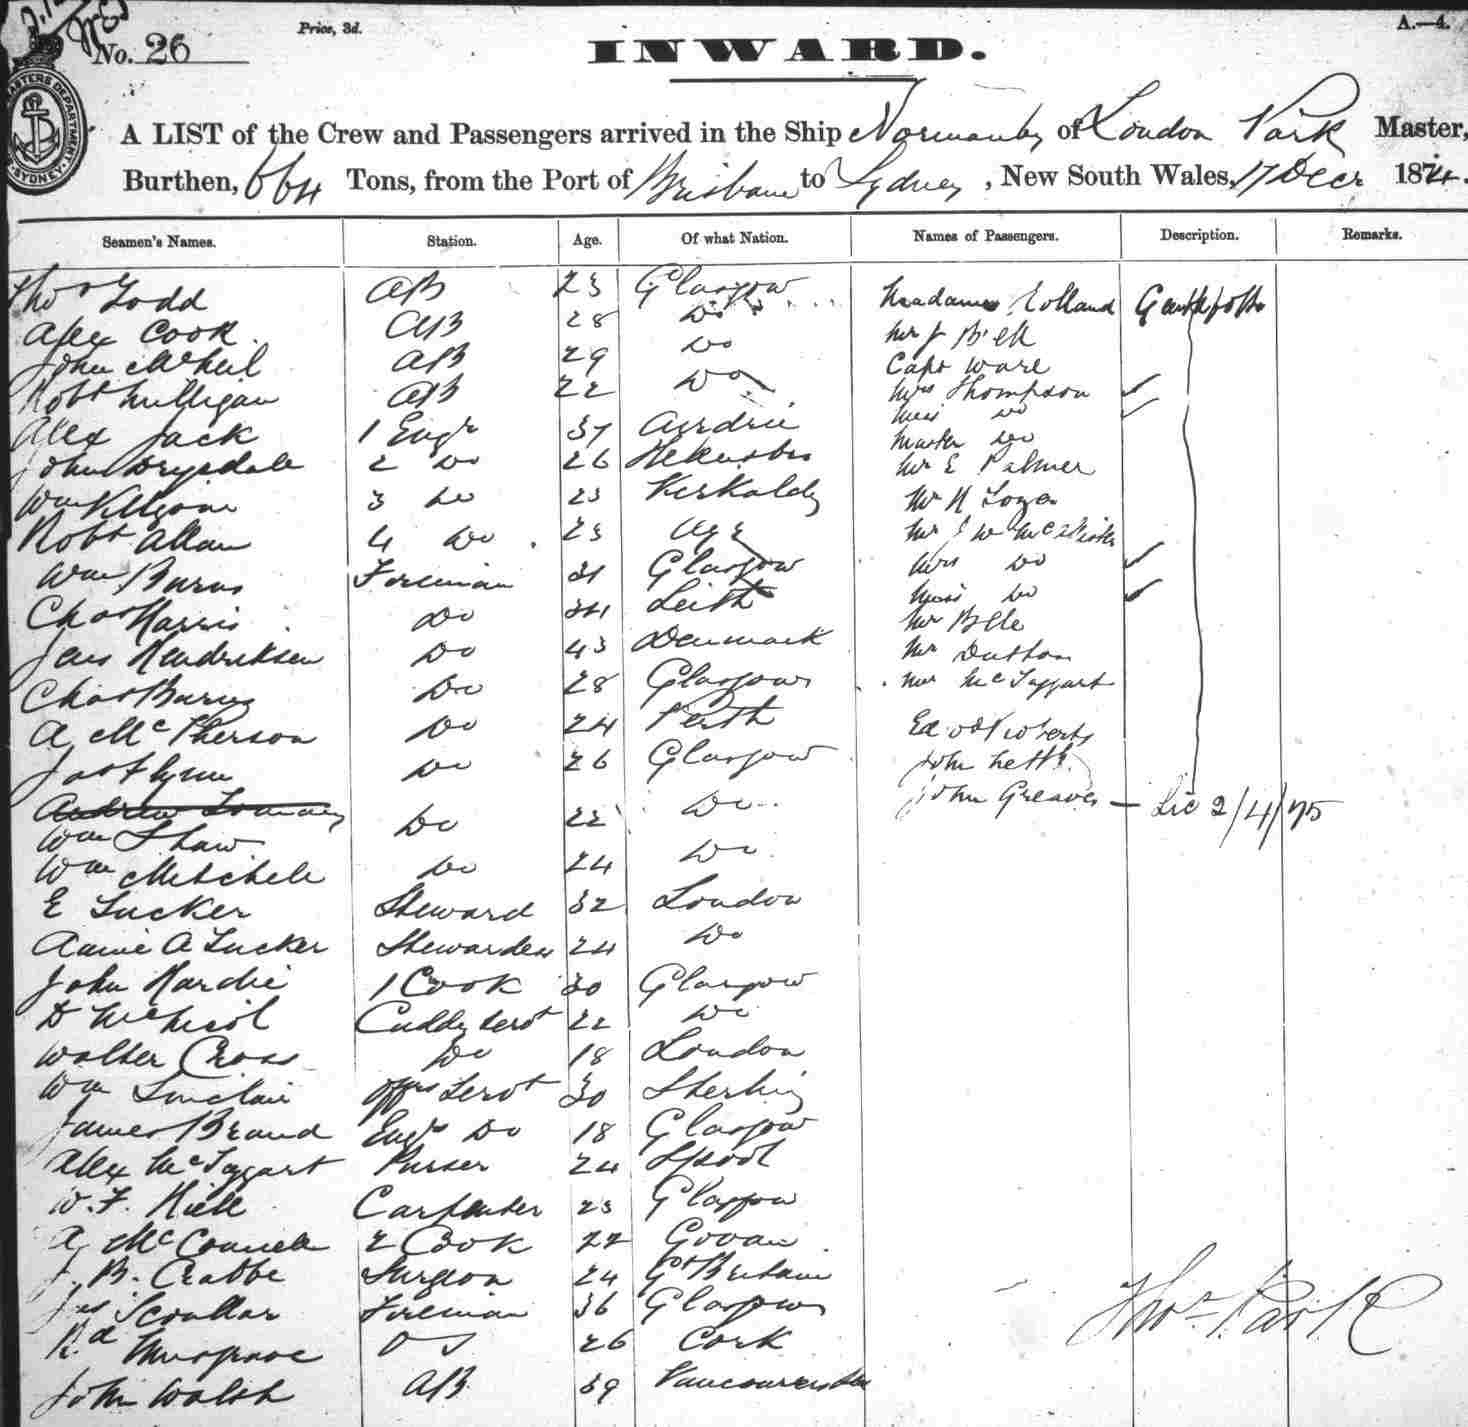 No. 26
Price, 3d.
A.—4.
INWARD.
A LIST of the Crew and Passengers arrived in the Ship Normanby of London Park Master,
Burthen, 664 Tons, from the Port of Brisbane to Sydney, New South Wales, 17 Decr 1874.
MASTERS DEPARTMENT SYDNEY
Seamen's Names. Station. Age. Of what Nation. Names of Passengers. Description. Remarks.
Thos Todd AB 23 Glasgow Madame Lolland
Alex Cook AB 28 Do Mr J Bell
John McNeil AB 29 Do Capt Ware
Robt Mulligan AB 22 Do Mrs Thompson
Miss Do
Alex Jack 1 Engr 37 Airdrie Master Do
John Drysdale 2 Do 26 Mr E Palmer
Wm 3 Do 23 Kirkaldy Mr N
Robt Allan 4 Do 23 Mr J W
Wm Burns Fireman 31 Glasgow Mrs Do
Chas Harris Do 34 Leith Miss Do
Mr Belle
Jens Hendriksen Do 43 Denmark Mr Dutton
Chas Do 28 Glasgow Mr McTaggart
A McPherson Do 24 Perth Edwd Roberts
Jas Flynn Do 26 Glasgow John
Andrew Do 22 Do John Greaves — Lic 2/4/75
Wm Shaw
Wm Mitchell Do 24 Do
E Tucker Steward 32 London
Annie A Tucker Stewardess 24 Do
John Hardie 1 Cook 30 Glasgow
D McNicol Cuddy Servt 22 Do
Walter Cross Do 18 London
Wm Sinclair Offrs Servt 30 Sterling
James Brand Engrs Do 18 Glasgow
Alex McTaggart Purser 24 Lpool
W. F. Hill Carpenter 23 Glasgow
A McConnell 2 Cook 22 Govan
J. B. Crabbe Surgeon 24 Gt Britain
Jas Scoullar Fireman 36 Glasgow
Rd Musgrave OS 26 Cork
John Walsh AB 39
Thos Park